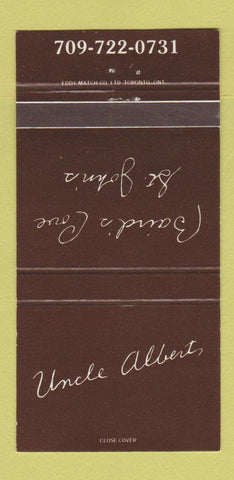 709-722-0731
EDDY MATCH CO. LTD. TORONTO, ONT.
Baird's Cove
St. John's
Uncle Alberts
CLOSE COVER